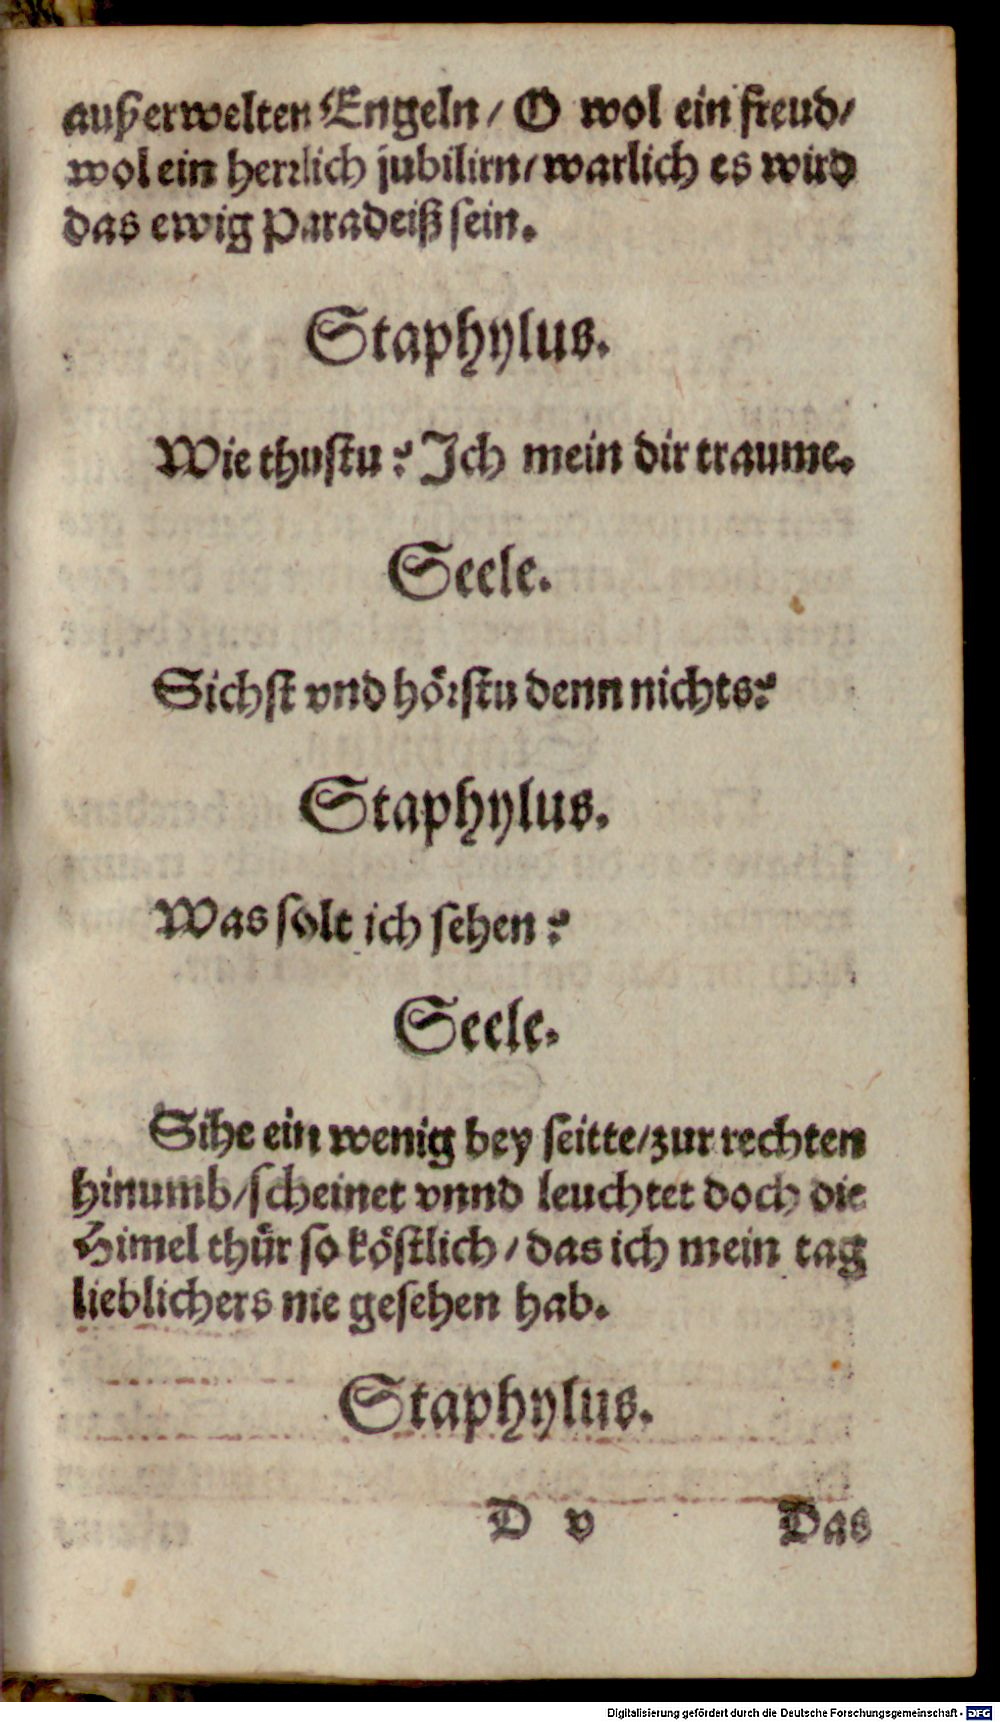 außerwelten Engeln/ O wol ein freud/
wol ein herrlich jubilirn/warlich es wird
das ewig Paradeiß sein.
Staphylus.
Wie thustu? Ich mein dir traume.
Seele.
Sichst vnd hörstu denn nichts?
Staphylus.
Was solt ich sehen?
Seele.
Sihe ein wenig bey seitte/zur rechten
hinumb/scheinet vnnd leuchtet doch die
Himel thür so köstlich/das ich mein tag
lieblichers nie gesehen hab.
Staphylus.
D v Das
Digitalisierung gefördert durch die Deutsche Forschungsgemeinschaft - DFG